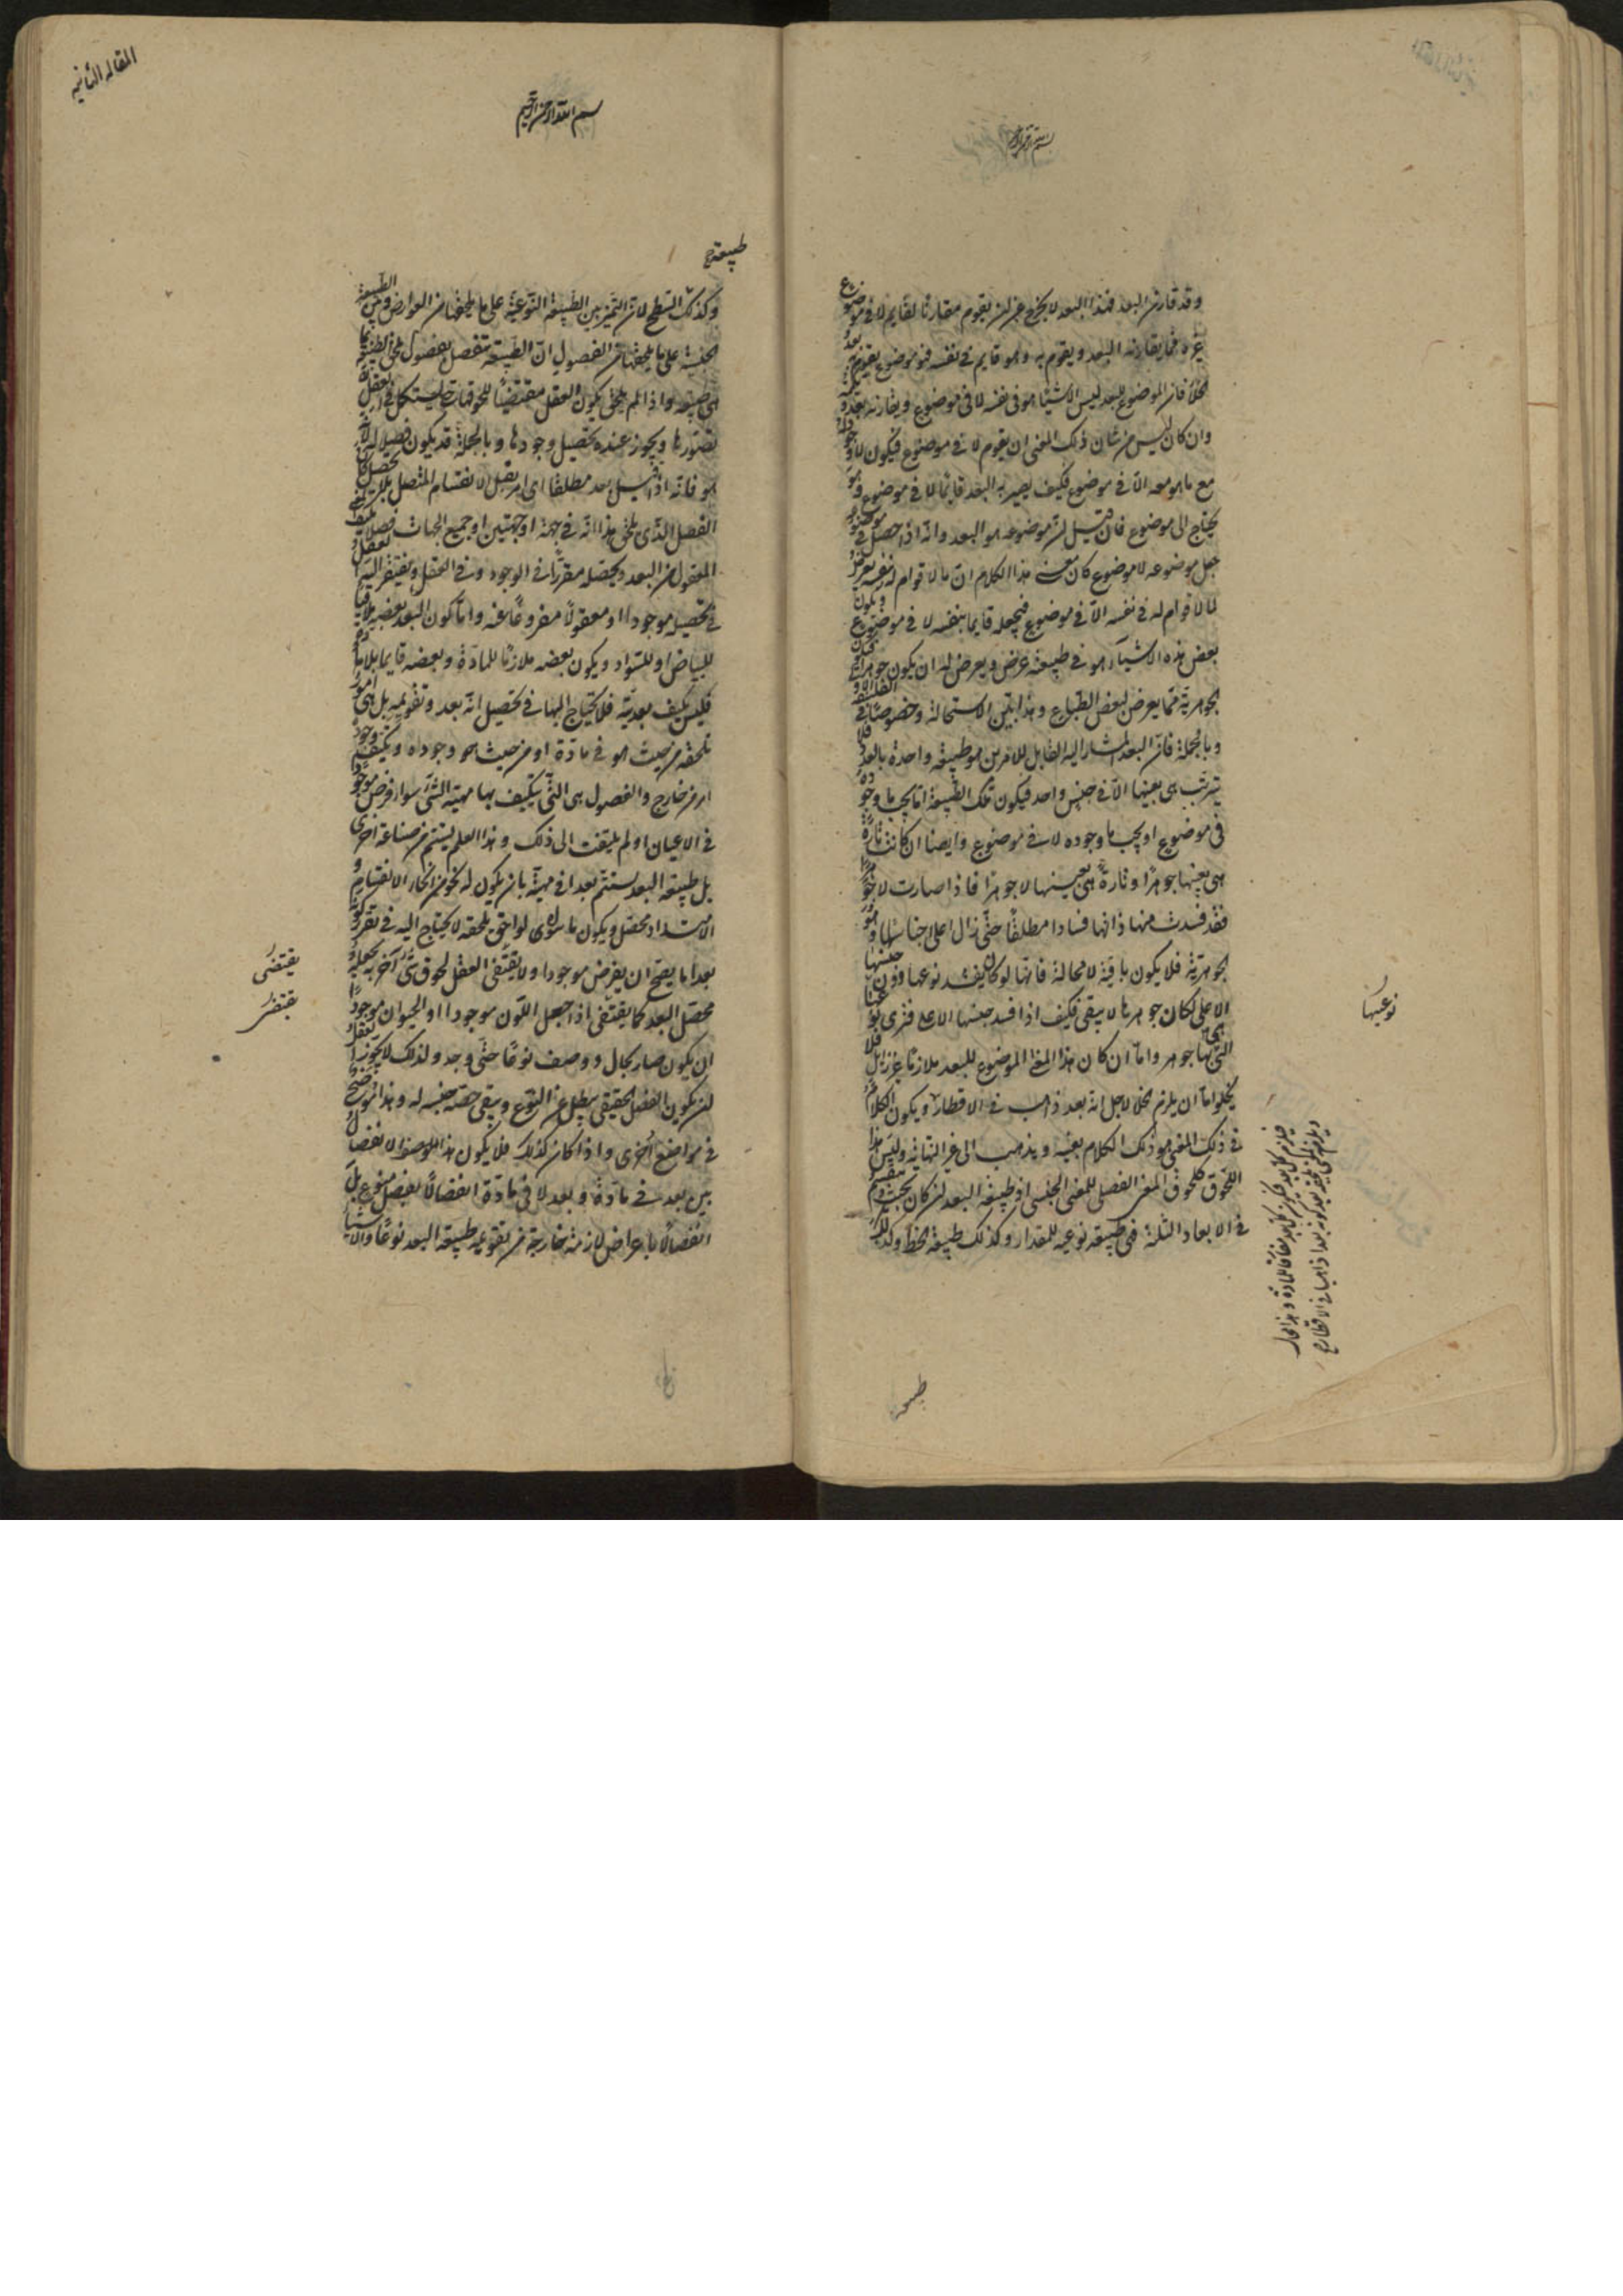 بسم الله الرحمن الرحيم
وقد قارن البعد فهذا البعد لا يخرج عن ان يقوم مقارنا لقايم لا في موضوع
غيره فما يقارنه البعد ويقوم به وهو قايم في نفسه فهو موضوع يقوم بعد
الخلأ فان الموضوع للبعد ليس الا شيئا هو في نفسه لا في موضوع ويقارنه بعد
وان كان ليس من شان ذلك المعنى ان يقوم لا في موضوع فيكون لا وجود له
مع ما هو معه الا في موضوع فكيف يصير به البعد قائما لا في موضوع وهو
يحتاج الى موضوع فان قيل ان موضوعه هو البعد وانه اذا حصل في موضوع
جعل موضوعه لا موضوع كان معنى هذا الكلام ان ما لا قوام له في نفسه يعرض
لما لا قوام له في نفسه الا في موضوع فيجعله قايما بنفسه لا في موضوع ويكون
بعض هذه الاشياء هو في طبيعته عرض ويعرض له ان يكون جوهرا فيكون
الجوهرية مما يعرض لبعض الطبايع وهذا بين الاستحالة وخصوصا في الفلسفة الاولى
وبالجملة فان البعد المشار اليه القابل للامرين هو طبيعة واحدة بالعدد فلا
يترتب هي بعينها الا في جنس واحد فيكون تلك الطبيعة اما يجب ما وجوده
في موضوع او يجب ما وجوده لا في موضوع وايضا ان كانت تارة
هي بعينها جوهرا وتارة هي بعينها لا جوهرا فاذا صارت لا جوهرا
فقد فسدت منها ذاتها فسادا مطلقا حتى زال اعلى اجناسها وهو
الجوهرية فلا يكون باقية لا محالة فانها لو كان يفسد نوعها دون جنسها
الاعلى لكان جوهرها لا يبقى فكيف اذا فسد جنسها الاعلى فترى نوعيتها
التي بها هي جوهر واما ان كان هذا المعنى الموضوع للبعد ملازما غير زايل فلا
يخلو اما ان يلزم لاجل انه بعد ذاهب في الاقطار ويكون الكلام
في ذلك المعنى هو ذلك الكلام بعينه ويذهب الى غير النهاية وليس هذا
اللحوق كلحوق المعنى الفصلي للمعنى الجنسي اذ طبيعة البعد ان كان بحيث ينقسم
في الابعاد الثلثة فهي طبيعة نوعية للمقدار وكذلك طبيعة الخط
نوعيتها
طبيعة
المقالة الثانية
بسم الله الرحمن الرحيم
طبيعة
وكذلك السطح لان التمييز بين الطبيعة النوعية على ما يلحقها من العوارض وبين الطبيعة
الجنسية على ما يلحقها من الفصول ان الطبيعة تنفصل بفصول يلحق الطبيعة بما
هي طبيعة واذا لم يلحق يكون العقل مقتضيا للحوقها حتى يستكمل في العقل
تصورها ويجوز عنده تحصيل وجودها وبالجملة قد يكون فصلا له لانه
هو فانه اذا قيل بعد مطلقا اي امر يقبل الانقسام المتصل
الفصل الذي يلحق هذا انه في جهة او جهتين او جميع الجهات فصلا
المعقول من البعد ويحصله مقررا في الوجود وفي العقل ويفتقر اليه العقل
في تحصيله موجودا او معقولا مفروغا عنه واما كون البعد بعضه ملاقيا
للبياض او للسواد ويكون بعضه ملازما للمادة وبعضه قايما بلا مادة
فليس يكيف بعديته فلا يحتاج اليها في تحصيل انه بعد وتقويمه بل هي امور
تلحقه من حيث هو في مادة او من حيث هو وجوداه ويكيف وجودا
امر من خارج والفصول هي التي يتكيف بها مهية الشيء سواء فرض موجودا
في الاعيان او لم يلتفت الى ذلك وهذا العلم يستتم من صناعة اخرى
بل طبيعة البعد يستتم بعدا في مهيته بان يكون له نحو من انحاء الانقسام و
الامتداد محصل ويكون ما سوى لواحق يلحقه لا يحتاج اليه في تقرر كونه
بعدا ما يصح ان يفرض موجودا ولا يقتضي العقل لحوق شيء آخر به يجعله
محصل البعد كما يقتضي اذا جعل اللون موجودا او الحيوان موجودا
ان يكون صار بحال ووصف نوعا حتى وجد ولذلك لا يجوز
ان يكون الفصل الحقيقي يبطل عن النوع ويبقى حصة جنسه له وهذا توضح
في مواضع اخرى واذا كان كذلك فلا يكون هذا الانفصال
بين بعد في مادة وبعد لا في مادة انفصالا بفصل منوع بل
انفصالا باعراض لازمة خارجة من تقويم طبيعة البعد نوعا والاشياء
يقتضى
يفتقر